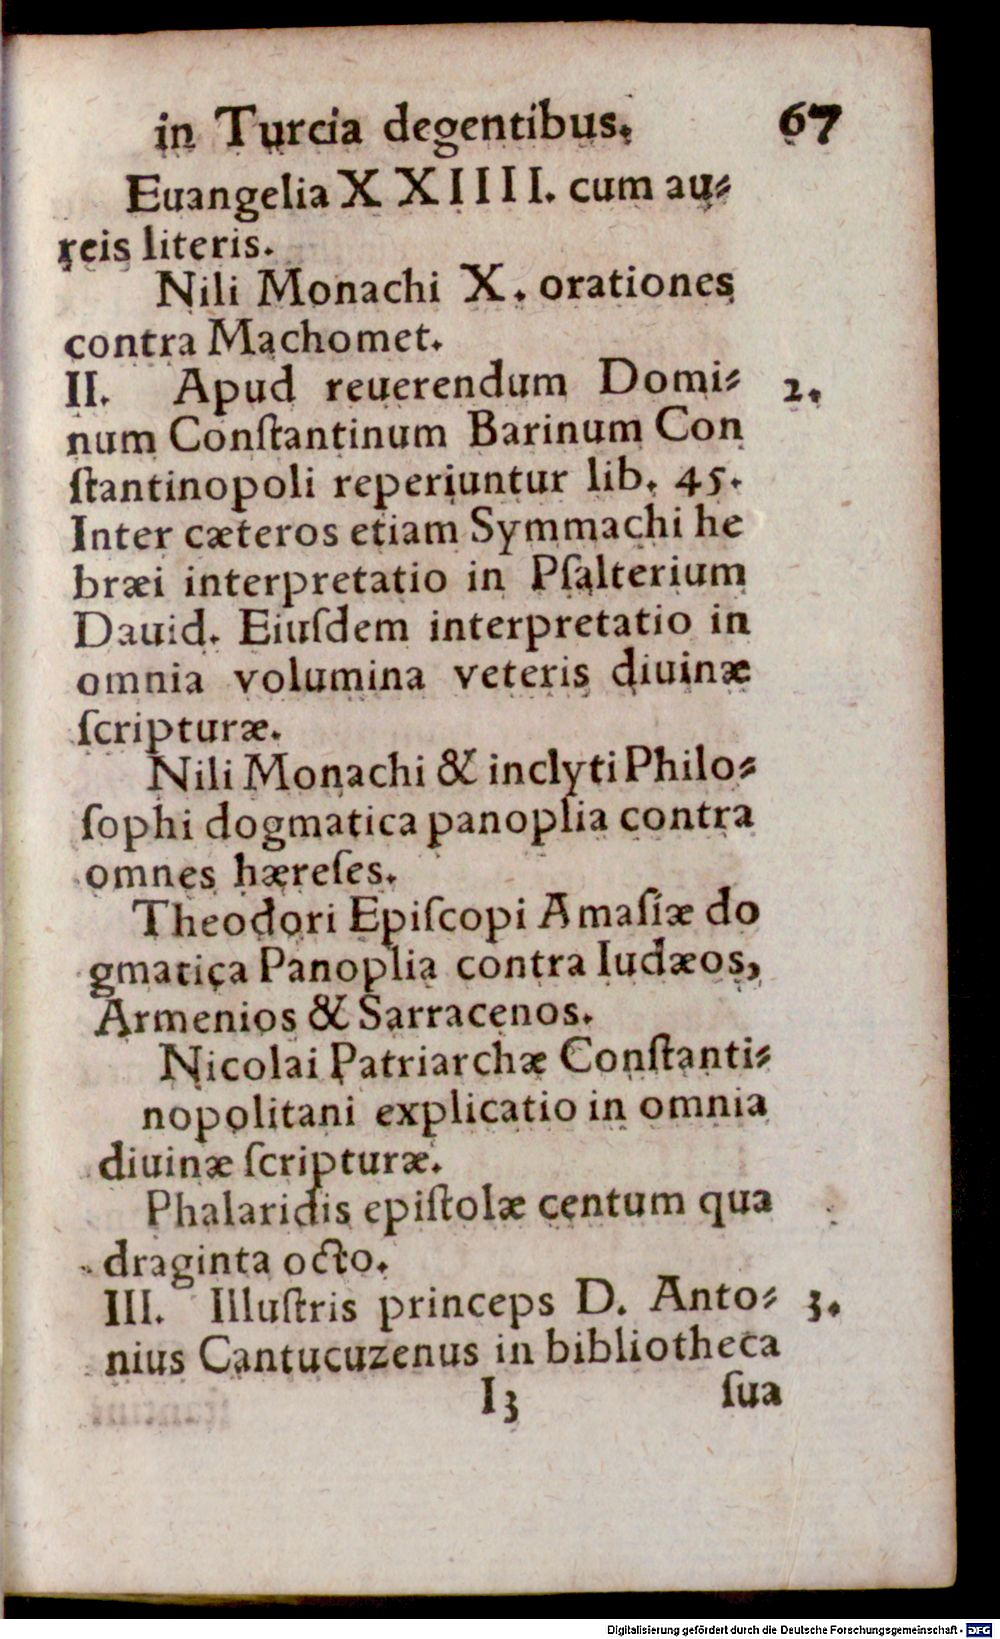 in Turcia degentibus. 67
Euangelia X XIIII. cum au⸗
reis literis.
Nili Monachi X. orationes
contra Machomet.
II. Apud reuerendum Domi⸗ 2.
num Conſtantinum Barinum Con
ſtantinopoli reperiuntur lib. 45.
Inter cæteros etiam Symmachi he
bræi interpretatio in Pſalterium
Dauid. Eiuſdem interpretatio in
omnia volumina veteris diuinæ
ſcripturæ.
Nili Monachi & inclyti Philo⸗
ſophi dogmatica panoplia contra
omnes hæreſes.
Theodori Epiſcopi Amaſiæ do
gmatica Panoplia contra Iudæos,
Armenios & Sarracenos.
Nicolai Patriarchæ Conſtanti⸗
nopolitani explicatio in omnia
diuinæ ſcripturæ.
Phalaridis epiſtolæ centum qua
draginta octo.
III. Illuſtris princeps D. Anto⸗ 3.
nius Cantucuzenus in bibliotheca
I3 ſua
Digitalisierung gefördert durch die Deutsche Forschungsgemeinschaft - DFG